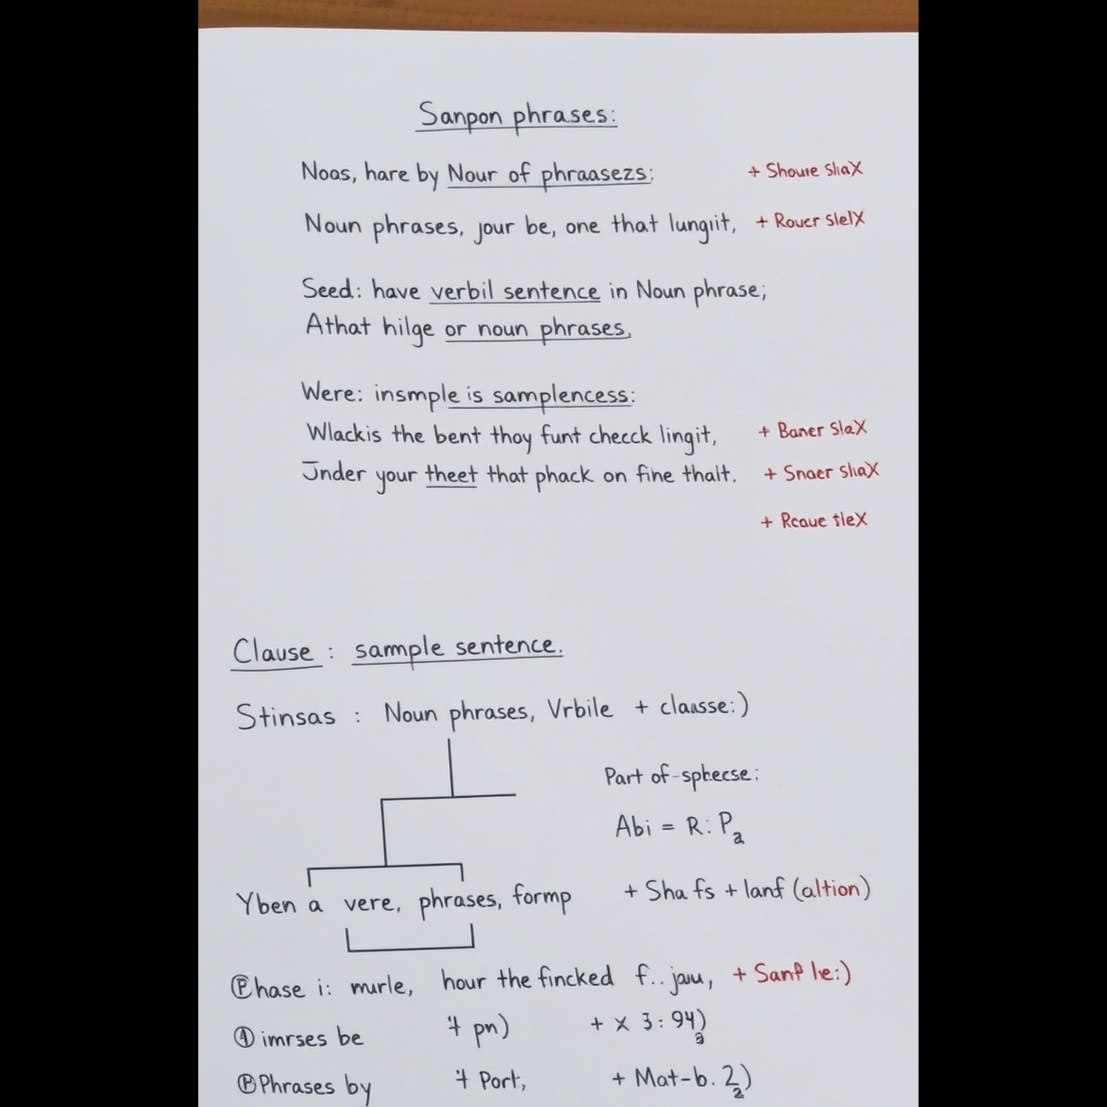 Sanpon phrases:
Noas, hare by Nour of phraasezs: + Shoure sliaX
Noun phrases, jour be, one that lungiit, + Rouer slelX
Seed: have verbil sentence in Noun phrase;
Athat hilge or noun phrases,
Were: insmple is samplencess:
Wlackis the bent thoy funt checck lingit, + Baner SlaX
Jnder your theet that phack on fine thalt. + Snaer shaX
+ Rcaue tleX
Clause : sample sentence.
Stinsas : Noun phrases, Vrbile + clausse:)
Part of-sphecse:
Abi = R: Pa
Yben a vere, phrases, formp + Sha fs + lanf (altion)
Ⓟhase i: murle, hour the fincked f.. jau, + Sanf le:)
Ⓐ imrses be pn) + x 3:94)
ⓅPhrases by Port, + Mat-b. 2)